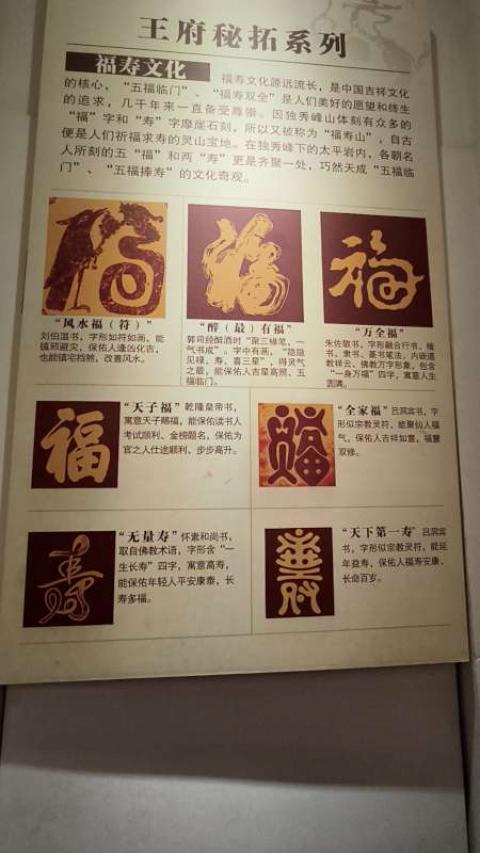 王府秘拓系列
福寿文化
福寿文化源远流长，是中国吉祥文化
的核心，“五福临门”、“福寿双全”是人们美好的愿望和终生
的追求，几千年来一直备受尊崇。因独秀峰山体刻有众多的
“福”字和“寿”字摩崖石刻，所以又被称为“福寿山”，自古
便是人们祈福求寿的灵山宝地。在独秀峰下的太平岩内，各朝名
人所刻的五“福”和两“寿”更是齐聚一处，巧然天成“五福临
门”、“五福捧寿”的文化奇观。
福
福
“风水福（符）”
刘伯温书，字形如符如画，能
镇邪避灾，保佑人逢凶化吉，
也能镇宅挡煞，改善风水。
“醉（最）有福”
郭司经醉酒时“聚三缘笔，一
气书成”，字中有画，“隐隐
见禄，寿，喜三星”，得灵气
之最，能保佑人吉星高照、五
福临门。
“万全福”
朱佐敬书，字形融合行书、楷
书、隶书、篆书笔法，内嵌道
教祥云、佛教万字形象，包含
“一身万福”四字，寓意人生
圆满。
福
“天子福”乾隆皇帝书，
寓意天子赐福，能保佑读书人
考试顺利、金榜题名，保佑为
官之人仕途顺利、步步高升。
“全家福”吕洞宾书，字
形似宗教灵符，能聚仙人福
气，保佑人吉祥如意，福慧
双修。
“无量寿”怀素和尚书，
取自佛教术语，字形含“一
生长寿”四字，寓意高寿，
能保佑年轻人平安康泰，长
寿多福。
“天下第一寿”吕洞宾
书，字形似宗教灵符，能延
年益寿，保佑人福寿安康、
长命百岁。